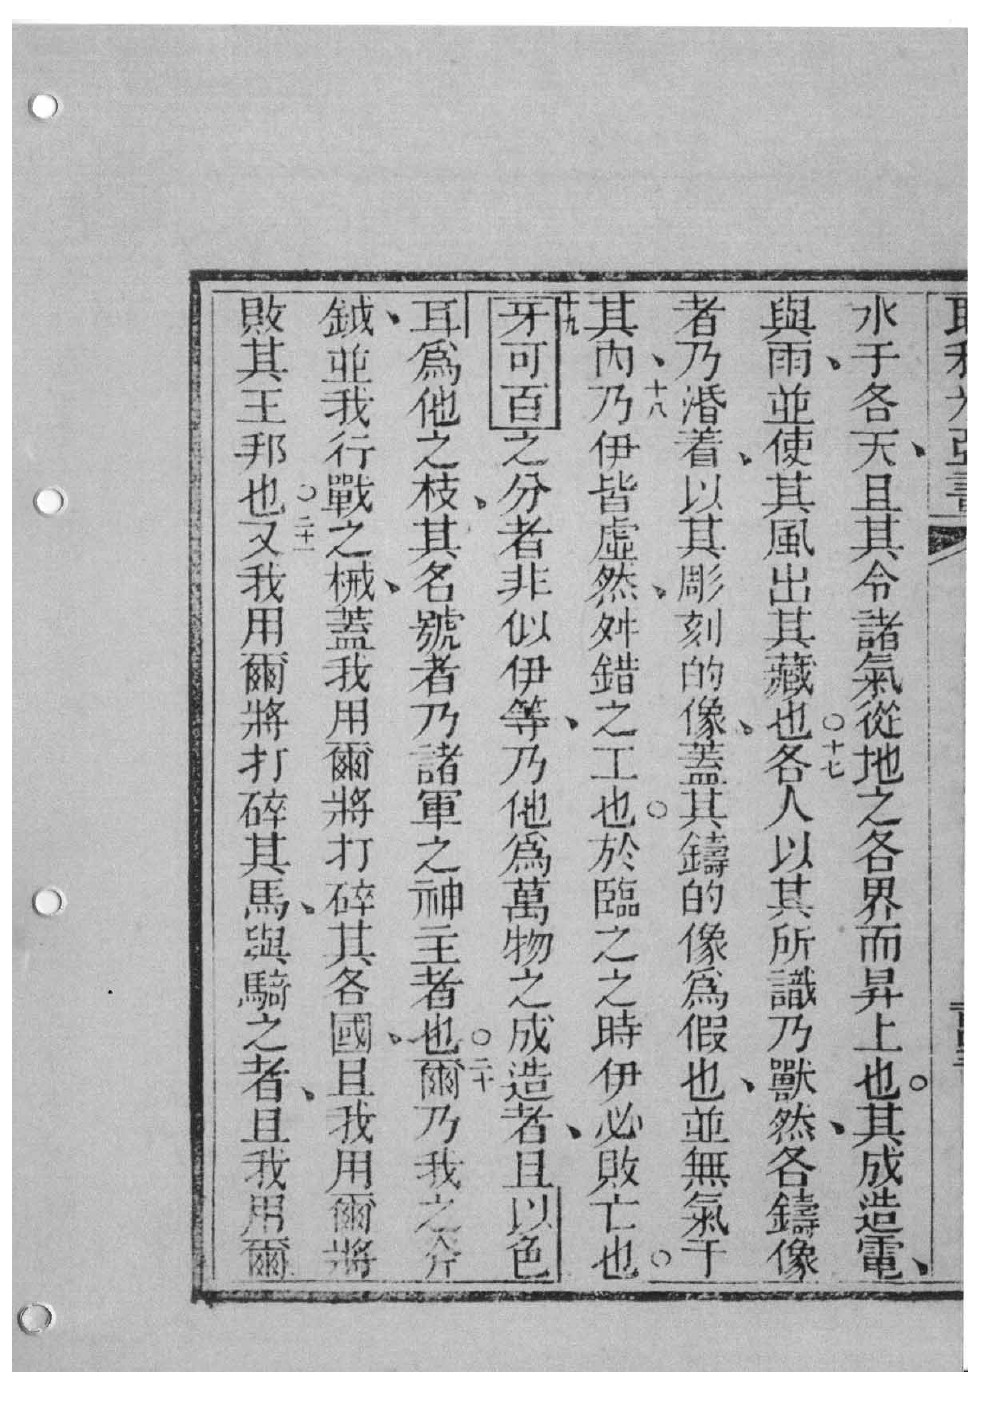 水于各天、且其令諸氣從地之各界而昇上也。其成造電、
與雨、並使其風出其藏也○十七各人以其所識乃獸然、各鑄像
者乃漘着、以其彫刻的像、蓋其鑄的像爲假也、並無氣于
其內、十八乃伊皆虛然、舛錯之工也○於臨之之時伊必敗亡也○
十九牙可百之分者非似伊等、乃他爲萬物之成造者、且以色
耳爲他之枝、其名號者乃諸軍之神主者也○二十爾乃我之斧
鉞、並我行戰之械、蓋我用爾將打碎其各國、且我用爾將
敗其王邦也○二十一又我用爾將打碎其馬、與騎之者、且我用爾